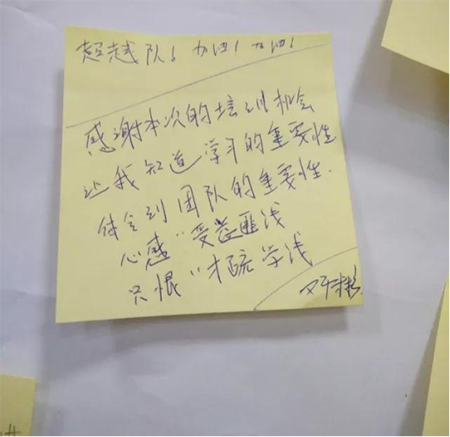 超越队！加油！加油！
感谢本次的培训机会
让我知道学习的重要性
体会到团队的重要性.
心感"受益匪浅
只恨"才疏学浅